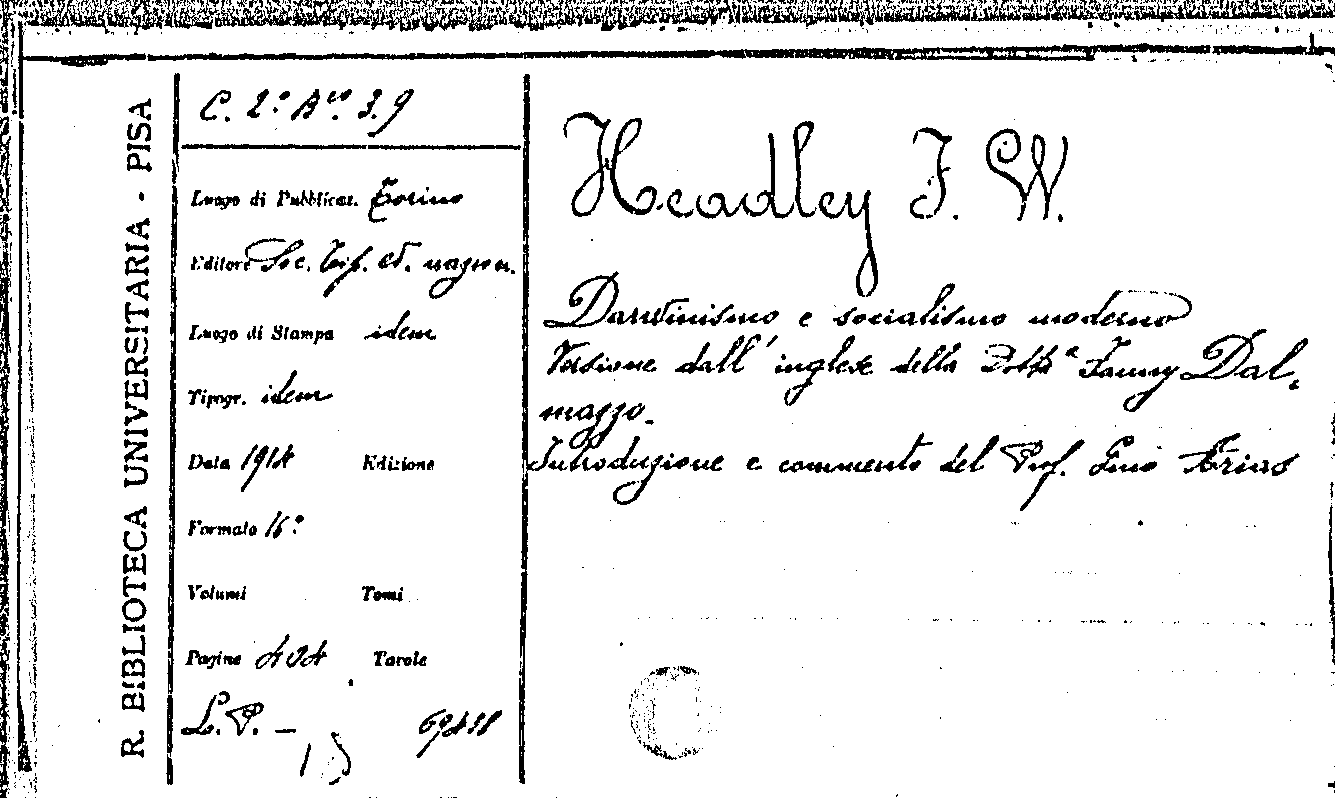 R. BIBLIOTECA UNIVERSITARIA - PISA
C. 2° A^co. 3.9
Luogo di Pubblicaz. Torino
Editore Soc. Tip. ed. nazion.
Luogo di Stampa idem
Tipogr. idem
Data 1914 Edizione
Formato 16°
Volumi Tomi
Pagine 404 Tavole
L. P. –
Headley F. W.
Darwinismo e socialismo moderno
Versione dall'inglese della Dott.ª Fanny Dal-
mazzo.
Introduzione e commento del Prof. Gino Arias